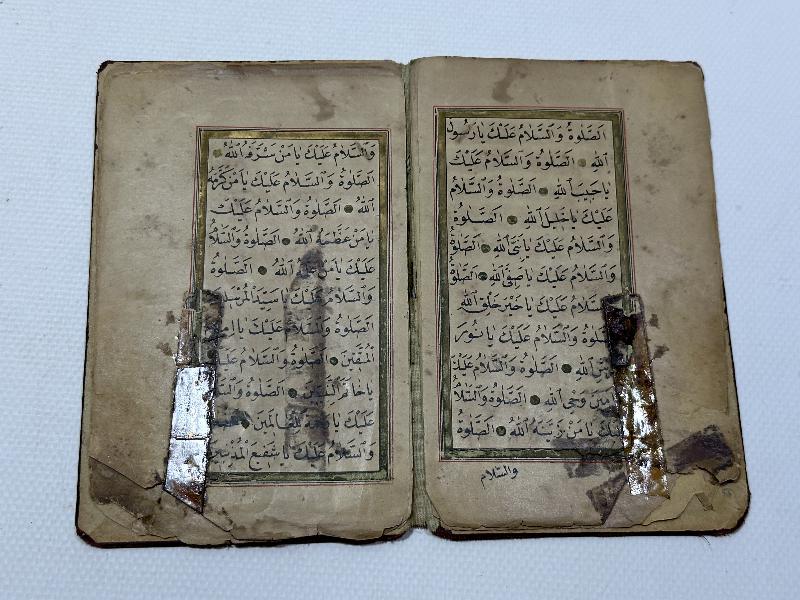 الصَّلوةُ وَالسَّلامُ عَلَيْكَ يَا رَسُولَ
اللهِ الصَّلوةُ وَالسَّلامُ عَلَيْكَ
يَا حَبِيبَ اللهِ الصَّلوةُ وَالسَّلامُ
عَلَيْكَ يَا خَلِيلَ اللهِ الصَّلوةُ
وَالسَّلامُ عَلَيْكَ يَا نَبِىَّ اللهِ الصَّلوةُ
وَالسَّلامُ عَلَيْكَ يَا صَفِىَّ اللهِ الصَّلوةُ
وَالسَّلامُ عَلَيْكَ يَا خَيْرَ خَلْقِ اللهِ
الصَّلوةُ وَالسَّلامُ عَلَيْكَ يَا نُورَ
اللهِ الصَّلوةُ وَالسَّلامُ عَلَيْكَ
وَحْىِ اللهِ الصَّلوةُ وَالسَّلامُ
عَلَيْكَ يَا مَنْ زَيَّنَهُ اللهُ الصَّلوةُ
والسّلام
وَالسَّلامُ عَلَيْكَ يَا مَنْ شَرَّفَهُ اللهُ
الصَّلوةُ وَالسَّلامُ عَلَيْكَ يَا مَنْ كَرَّمَهُ
اللهُ الصَّلوةُ وَالسَّلامُ عَلَيْكَ
يَا مَنْ عَظَّمَهُ اللهُ الصَّلوةُ وَالسَّلامُ
عَلَيْكَ يَا مَنْ اللهُ الصَّلوةُ
وَالسَّلامُ عَلَيْكَ يَا سَيِّدَ الْمُرْسَلِينَ
الصَّلوةُ وَالسَّلامُ عَلَيْكَ يَا اِمَامَ
الْمُتَّقِينَ الصَّلوةُ وَالسَّلامُ عَلَيْكَ
يَا خَاتَمَ النَّبِيِّينَ الصَّلوةُ وَالسَّلامُ
عَلَيْكَ يَا
وَالسَّلامُ عَلَيْكَ يَا شَفِيعَ الْمُذْنِبِينَ